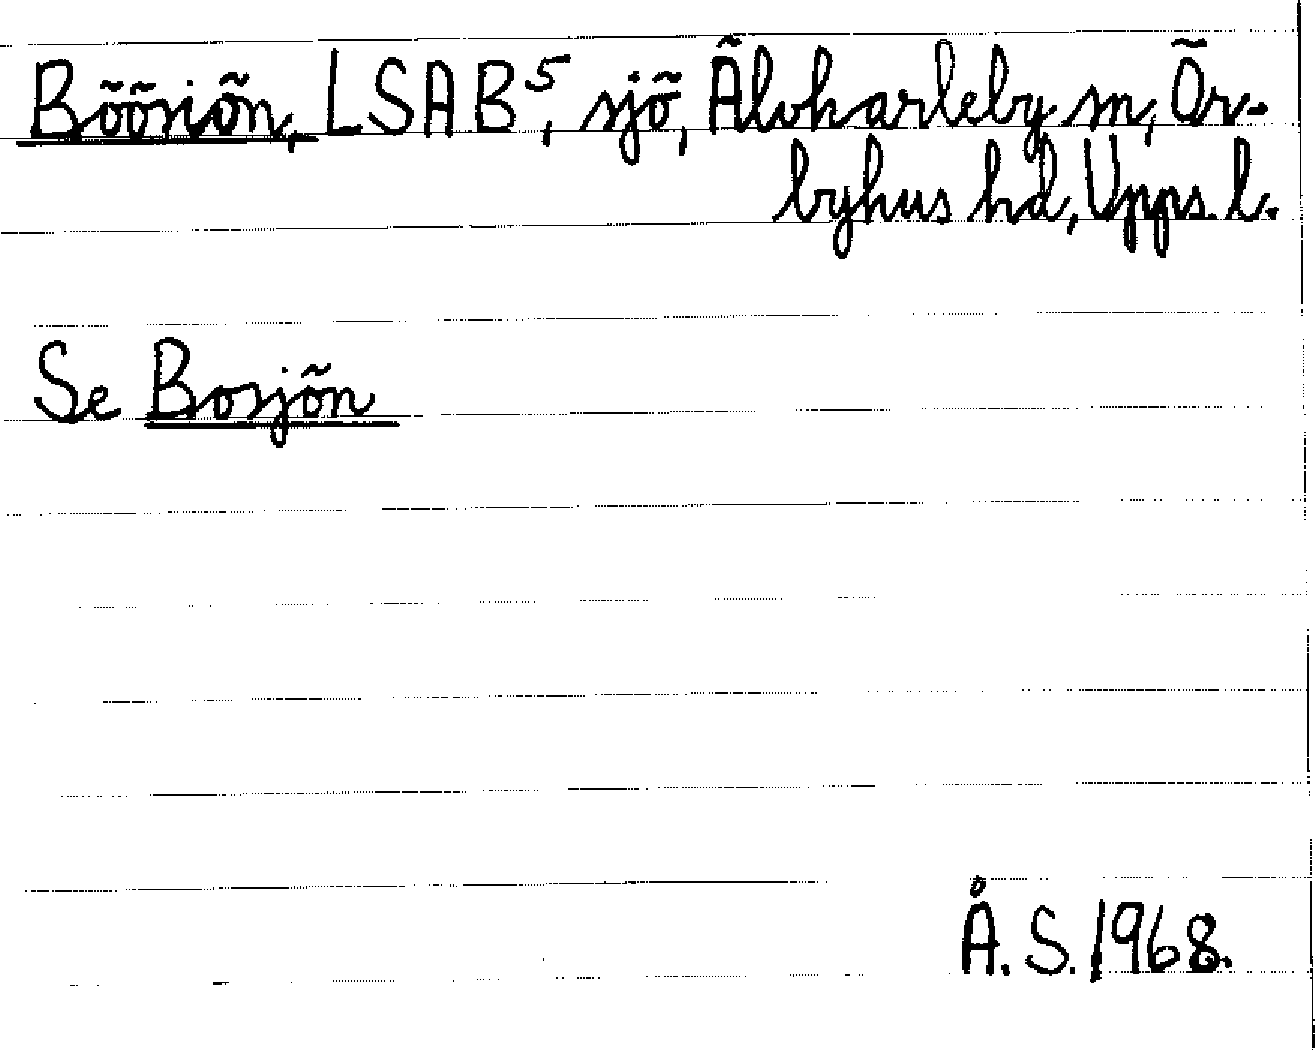 Böösiön, LSA B⁵, sjö, Älvkarleby sn, Ör-
byhus hd, Upps. l.
Se Bosjön
Å. S. 1968.